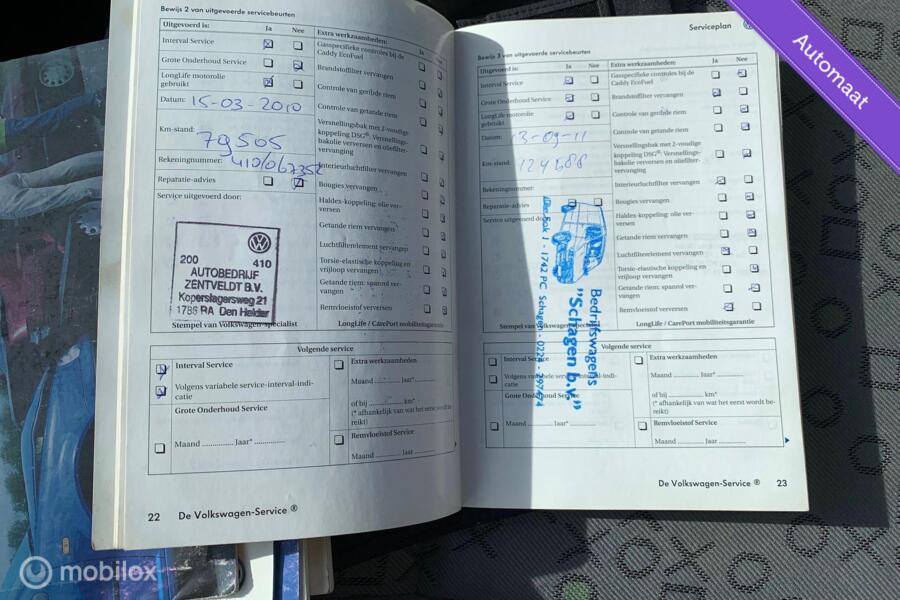 Bewijs 2 van uitgevoerde servicebeurten
Uitgevoerd is: Ja Nee
Extra werkzaamheden: Ja
Interval Service
Grote Onderhoud Service
LongLife motorolie
gebruikt
Datum: 15-03-2010
Km-stand: 79505
Rekeningnummer:
Reparatie-advies
Service uitgevoerd door:
200 410
AUTOBEDRIJF
ZENTVELDT B.V.
Koperslagersweg 21
1786 RA Den Helder
Stempel van Volkswagen-specialist
Gasspecifieke controles bij de
Caddy EcoFuel
Brandstoffilter vervangen
Controle van geribde riem
Controle van getande riem
Versnellingsbak met 2-voudige
koppeling DSG®: Versnellings-
bakolie verversen en oliefilter-
vervanging
Interieurluchtfilter vervangen
Bougies vervangen
Haldex-koppeling: olie ver-
versen
Getande riem vervangen
Luchtfilterelement vervangen
Torsie-elastische koppeling en
vrijloop vervangen
Getande riem: spanrol ver-
vangen
Remvloeistof verversen
LongLife / CarePort mobiliteitsgarantie
Volgende service
Interval Service
Volgens variabele service-interval-indi-
catie
Grote Onderhoud Service
Maand Jaar*
Extra werkzaamheden
Maand Jaar*
of bij km*
(* afhankelijk van wat het eerst wordt be-
reikt)
Remvloeistof Service
Maand Jaar
22 De Volkswagen-Service ®
Serviceplan
Bewijs 3 van uitgevoerde servicebeurten
Uitgevoerd is: Ja Nee
Extra werkzaamheden: Ja Nee
Interval Service
Grote Onderhoud Service
LongLife motorolie
gebruikt
Datum: 13-09-11
Km-stand:
Rekeningnummer:
Reparatie-advies
Service uitgevoerd door:
Bedrijfswagens
"Schagen b.v."
1742 PC Schagen
Stempel van Volkswagen-specialist
Gasspecifieke controles bij de
Caddy EcoFuel
Brandstoffilter vervangen
Controle van geribde riem
Controle van getande riem
Versnellingsbak met 2-voudige
koppeling DSG®: Versnellings-
bakolie verversen en oliefilter-
vervanging
Interieurluchtfilter vervangen
Bougies vervangen
Haldex-koppeling: olie ver-
versen
Getande riem vervangen
Luchtfilterelement vervangen
Torsie-elastische koppeling en
vrijloop vervangen
Getande riem: spanrol ver-
vangen
Remvloeistof verversen
LongLife / CarePort mobiliteitsgarantie
Volgende service
Interval Service
Volgens variabele service-interval-indi-
catie
Grote Onderhoud Service
Maand Jaar*
Extra werkzaamheden
Maand Jaar*
of bij km*
(* afhankelijk van wat het eerst wordt be-
reikt)
Remvloeistof Service
Maand Jaar
De Volkswagen-Service ® 23
Automaat
mobilox